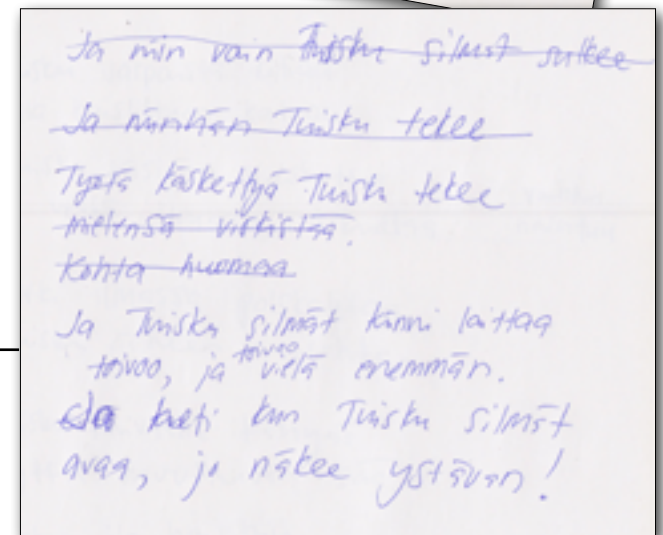 Ja niin vain Tuisku silmät sulkee
Ja niinhän Tuisku tekee
Työtä käskettyä Tuisku tekee
mielensä virkistää.
Kohta huomaa
Ja Tuisku silmät kiinni laittaa
toivoo, ja toivoo vielä enemmän.
Ja heti kun Tuisku silmät
avaa, jo näkee ystävän!